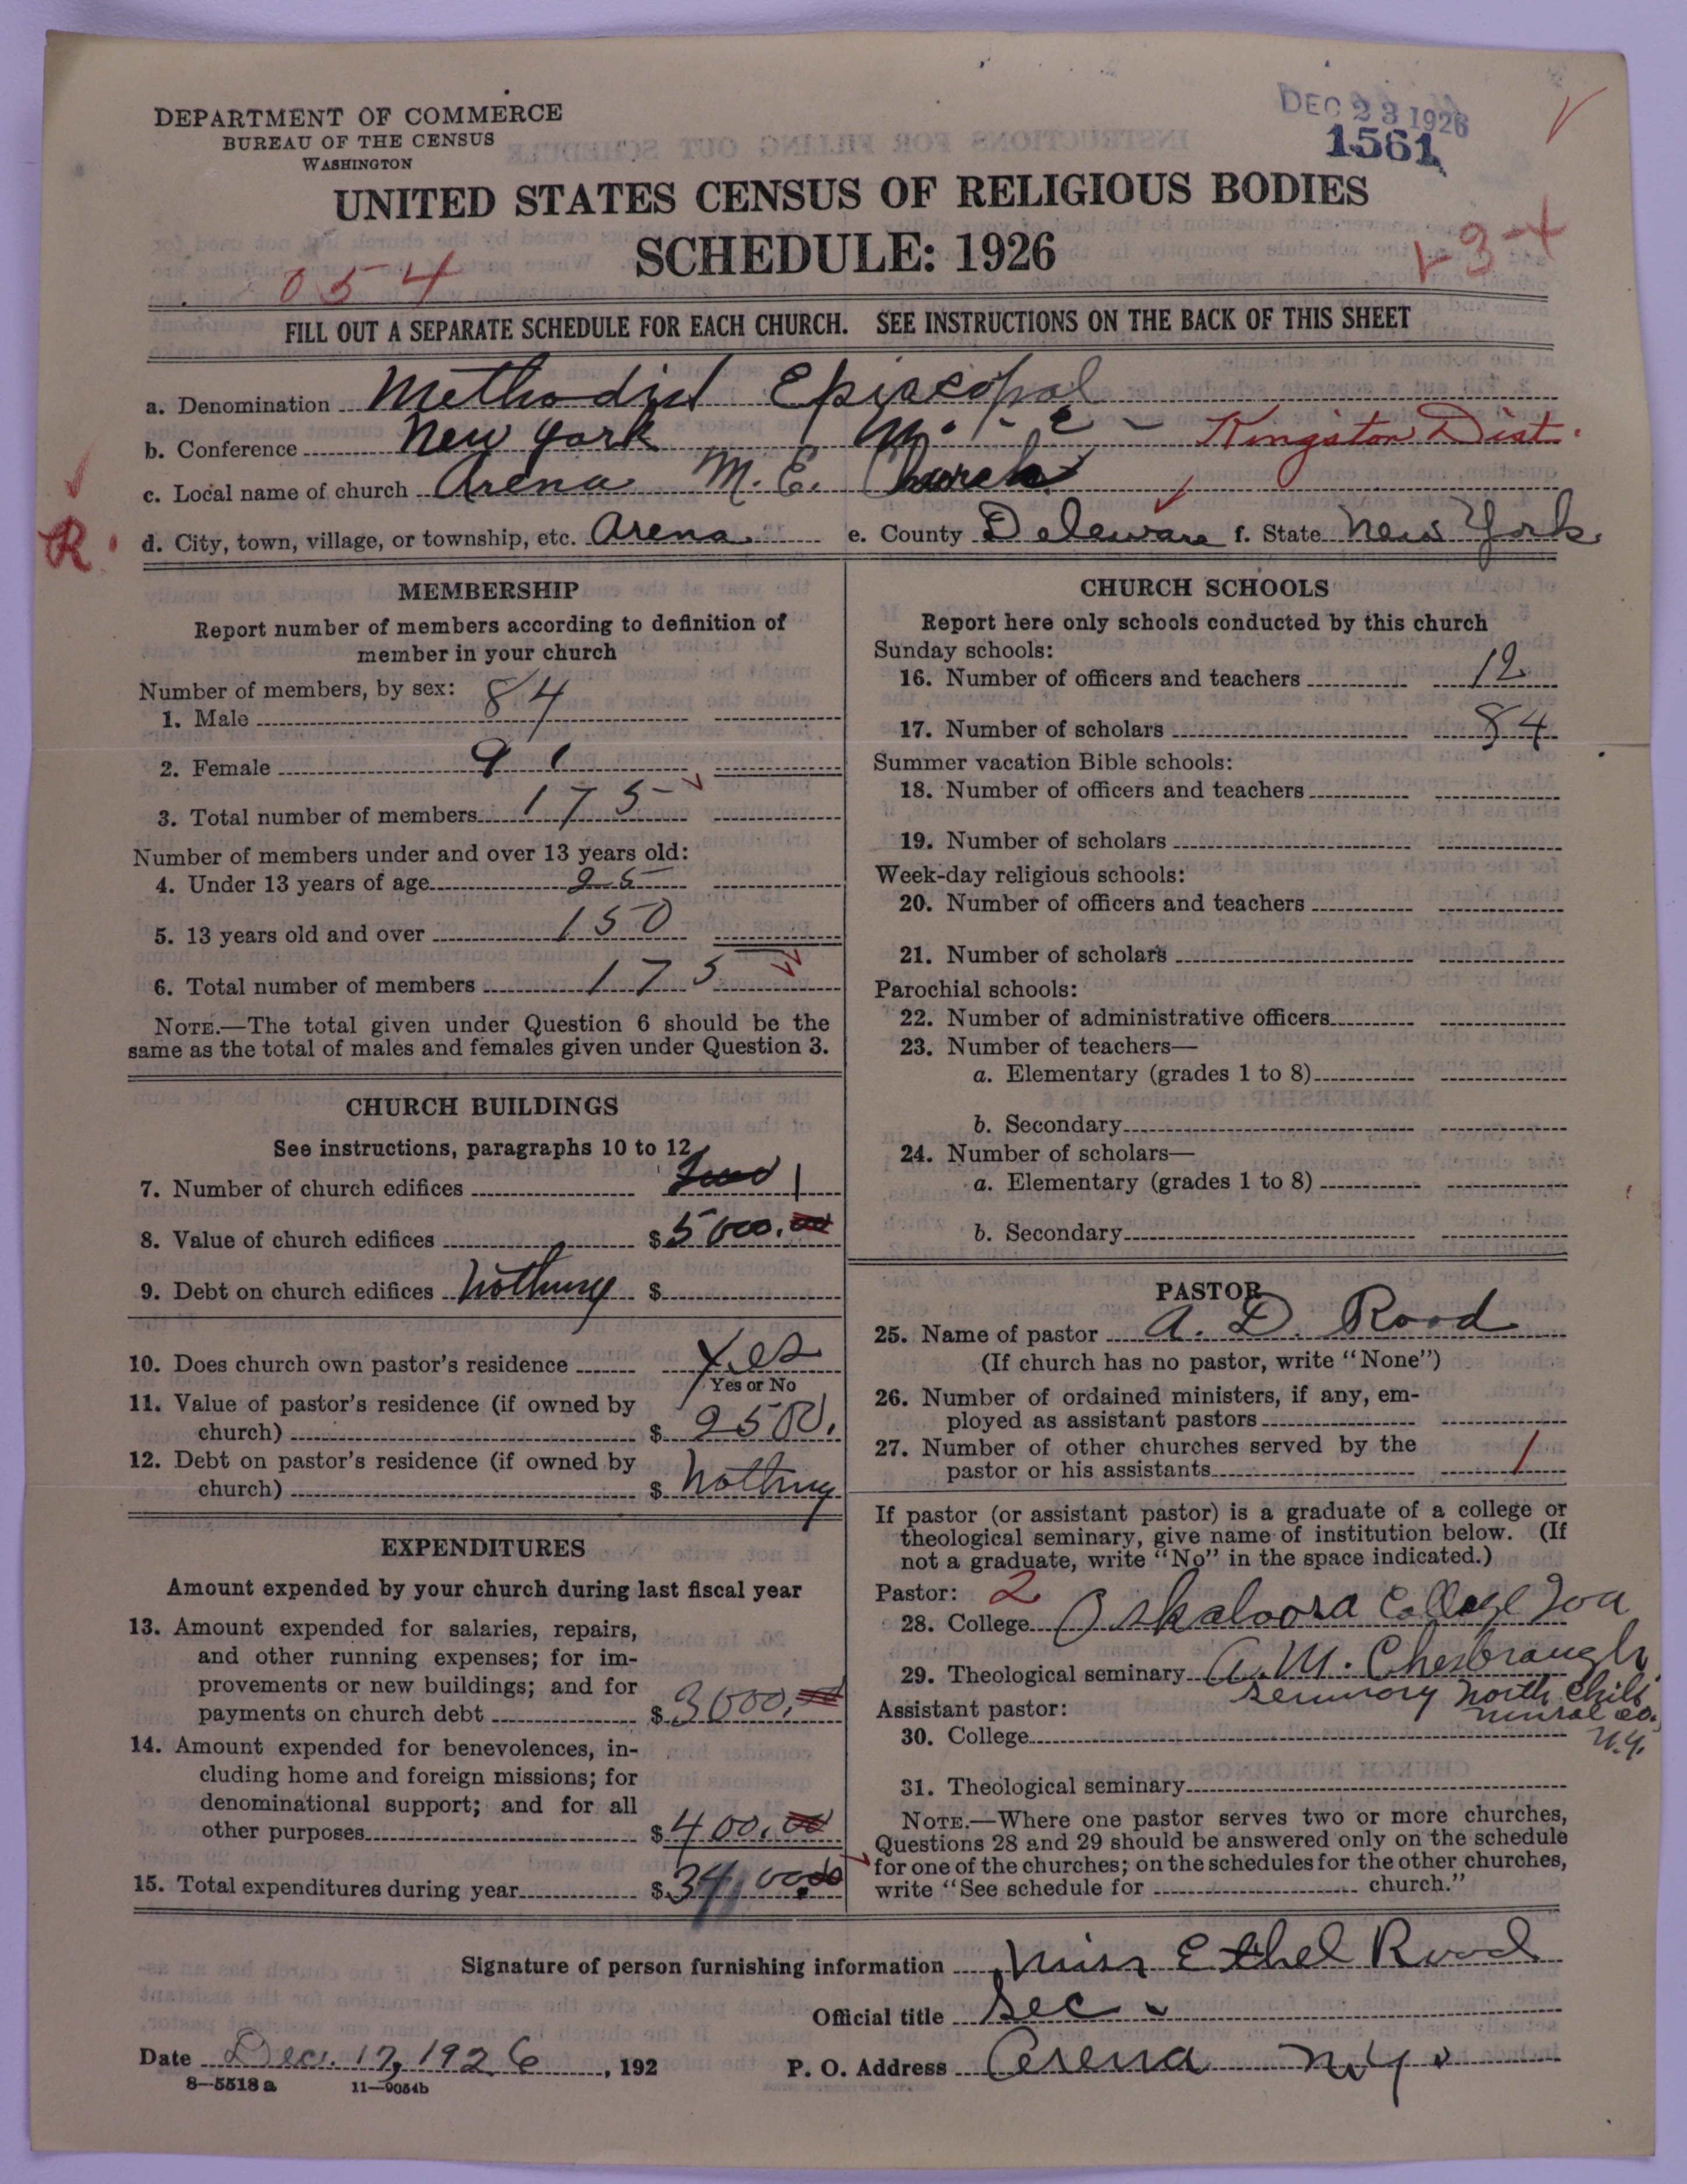 DEPARTMENT OF COMMERCE
BUREAU OF THE CENSUS
WASHINGTON
DEC 23 1926
1561
UNITED STATES CENSUS OF RELIGIOUS BODIES
SCHEDULE: 1926
054
1-3-4
FILL OUT A SEPARATE SCHEDULE FOR EACH CHURCH. SEE INSTRUCTIONS ON THE BACK OF THIS SHEET
a. Denomination Methodist Episcopal
b. Conference New York M. E. - Kingston Dist.
c. Local name of church Arena M. E. Church
R.
d. City, town, village, or township, etc. Arena. e. County Deleware f. State New York.
MEMBERSHIP
Report number of members according to definition of
member in your church
Number of members, by sex:
1. Male 84
2. Female 91
3. Total number of members 175
Number of members under and over 13 years old:
4. Under 13 years of age 25
5. 13 years old and over 150
6. Total number of members 175
NOTE.—The total given under Question 6 should be the
same as the total of males and females given under Question 3.
CHURCH BUILDINGS
See instructions, paragraphs 10 to 12
7. Number of church edifices Two 1
8. Value of church edifices $5000.00
9. Debt on church edifices Nothing $
10. Does church own pastor's residence Yes
Yes or No
11. Value of pastor's residence (if owned by
church) $ 2500.
12. Debt on pastor's residence (if owned by
church) $ Nothing
EXPENDITURES
Amount expended by your church during last fiscal year
13. Amount expended for salaries, repairs,
and other running expenses; for im-
provements or new buildings; and for
payments on church debt $3000.00
14. Amount expended for benevolences, in-
cluding home and foreign missions; for
denominational support; and for all
other purposes $400.00
15. Total expenditures during year $3400.00
CHURCH SCHOOLS
Report here only schools conducted by this church
Sunday schools:
16. Number of officers and teachers 12
17. Number of scholars 84
Summer vacation Bible schools:
18. Number of officers and teachers
19. Number of scholars
Week-day religious schools:
20. Number of officers and teachers
21. Number of scholars
Parochial schools:
22. Number of administrative officers
23. Number of teachers—
a. Elementary (grades 1 to 8)
b. Secondary
24. Number of scholars—
a. Elementary (grades 1 to 8)
b. Secondary
PASTOR
25. Name of pastor A. D. Rood
(If church has no pastor, write "None")
26. Number of ordained ministers, if any, em-
ployed as assistant pastors
27. Number of other churches served by the
pastor or his assistants 1
If pastor (or assistant pastor) is a graduate of a college or
theological seminary, give name of institution below. (If
not a graduate, write "No" in the space indicated.)
Pastor: 2
28. College Oskaloosa College Ioa
29. Theological seminary A. M. Chesbraugh
Seminory North Chili
Assistant pastor:
N.Y.
30. College
31. Theological seminary
NOTE.—Where one pastor serves two or more churches,
Questions 28 and 29 should be answered only on the schedule
for one of the churches; on the schedules for the other churches,
write "See schedule for church."
Signature of person furnishing information Miss Ethel Rood
Official title Sec.
Date Dec. 17, 1926, 192 P. O. Address Arena N.Y.
8—5518 a 11—9054b